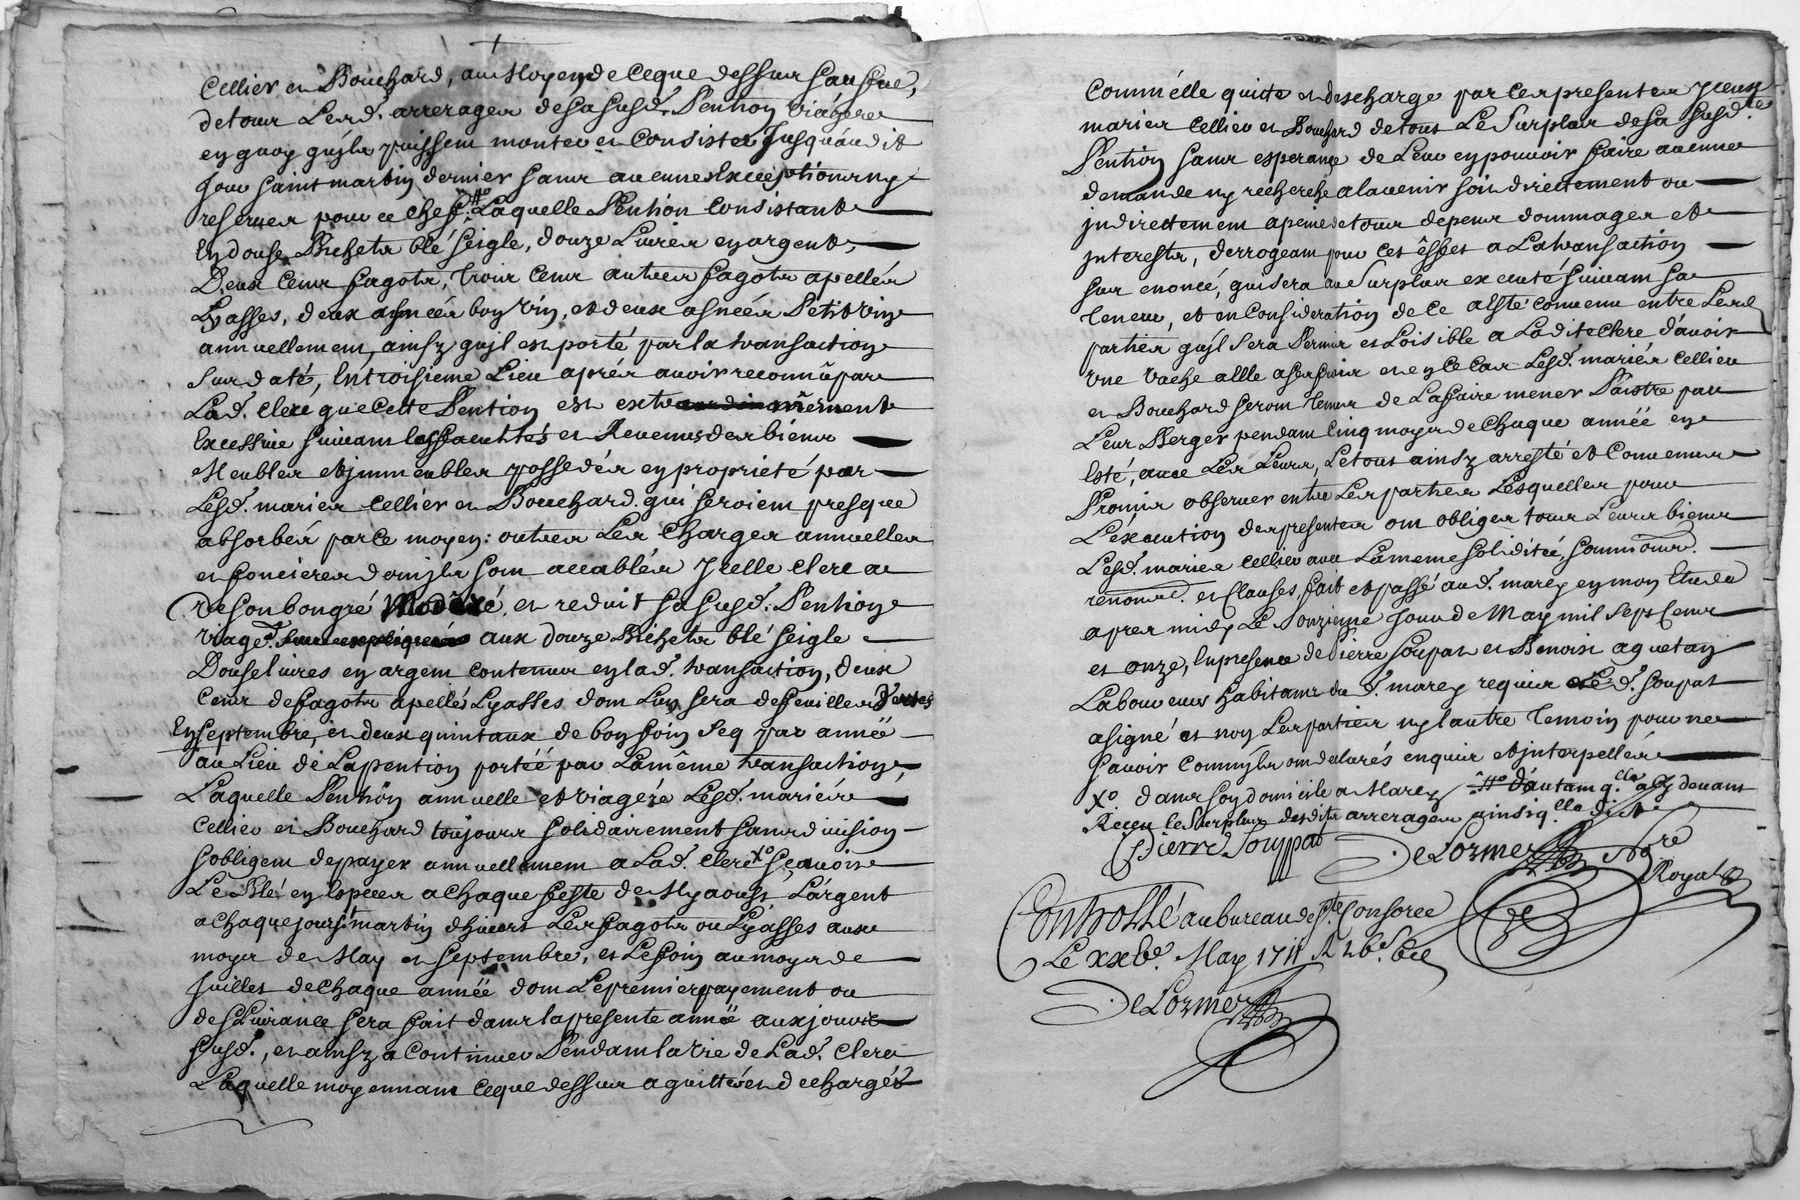 Cellier et Bouchard, au Moyen de ceque dessus sauf
de tous Lesd. arrerages desa susd. Pention viagere
en quoy qujls puissent monter et Consister Jusquaudit
Jour saint martin dernier sans aucunes exceptions ny
reserves pour ce chef. Laquelle Pention Consistant
En douse Bichets blé seigle, douze Livres en argent,
Deux Cens fagots, trois Cens autres fagots apellés
Lyasses, deux asnéés bon vin, et deux asnéés Petit vin
annuellement, ainsy qujl est porté par la transaction
susdaté, En troisieme Lieu aprés avoir reconnû par
Lad. Clerc que Cette Pention est extraordinairement
Excessive suivant les facultés et Revenus des biens
Meubles et jmmeubles possedés en proprieté par
Lesd. mariés Cellier et Bouchard qui seroient presque
absorbés par ce moyen: outre Les Charges annuelles
et foncieres dont jls sont accablés Jcelle Clerc a
de son bon gré Moderé, et reduit sa susd. Pention
viagé. aux douze Bichets blé seigle
Douse livres en argent contenus en lad. transaction, deux
Cens de fagots apellés Lyasses dont Lun sera de feuilles Vertes
En septembre, et deux quintaux de bon foin seq par annéé
au Lieu de Lapention portéé par Lamême transaction,
Laquelle Pention annuelle et viagére Lesd. mariés
Cellier et Bouchard toujours solidairement sans division
sobligent depayer annuellement a Lad. Clerc Xo sçavoir
Le Blé en Especes a chaque feste de Myaoust, Largent
a chaque jour st martin dhivers Les fagots ou Lyasses aux
moys de May et septembre, et Le foin au moys de
Juillet de chaque annéé dont Le premier payement ou
deslivrance sera fait dans la presente annéé aux jours
susd., et ainsy a Continuer Pendant la vie de Lad. Clerc
Laquelle moyennant ceque dessus a quitté et dechargés
Comm'élle quitte et descharge par les presentes Jceux
mariés Cellier et Bouchard de tous Le Surplus de sa susd.te
Pention sans esperance de Leur en pouvoir faire aucune
demande ny recherche alavenir soit directement ou
jndirectement a peine de tous depens dommages et
jnterests, derrogeant pour cet êffet a La transaction
sus enoncé, qui sera au Surplus executé suivant sa
teneur, et en Consideration de Ce a Esté convenu entre Lesd.
parties qujl sera Permis et Loisible a Ladite Clerc d'avoir
une vache
et Bouchard seront tenus de La faire mener Paistre par
Leur Berger pendant Cinq moys de Chaque annéé en
Esté, avec Les Leurs, Letout ainsy arresté et Convenu
Promis observer entre Les parties Lesquelles pour
L'éxécution des presentes ont obligés tous Leurs biens
Lesd. mariés Cellier avec Lameme solidité, sommons.
renond. et Clauses, fait et passé aud. marcy en mon Etude
apres midy Le onzieme Jour de May mil sept Cens
et onze, En presence de Pierre soupat et Benoist aguetan
Laboureurs habitans du d. marcy requis Led. soupat
a signé et non Les parties ny l'autre temoin pour ne
scavoir Commjls ont declarés enquis et jnterpellés
Xo. dans son domicile a Marcy d'autant q.elle a cy devant
Receu le Surplus desdits arrerages ainsi q.elle dit
Pierre Souppat
De Lormes Nore
Royal
Controllé au bureau de ste Consorce
Le xxbe. May 1711
De Lormes